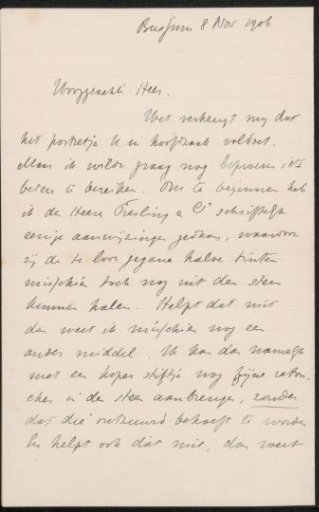 Bussum 8 Nov 1906
Hooggeachte Heer.
Het verheugt mij dat
het portretje U in hoofdzaak voldoet.
Maar ik wilde graag nog beproeven iets
beters te bereiken. Om te beginnen heb
ik de Heeren Tresling & Co schriftelijk
eenige aanwijzingen gedaan, waardoor
zij de te loor gegane halve tinten
misschien toch nog uit den steen
kunnen halen. Helpt dat niet
dan weet ik misschien nog een
ander middel. Ik kan dan namelijk
met een koper stiftje nog fijne retou-
ches in de steen aanbrengen, zonder
dat die ontzuurd behoeft te worden
En helpt ook dát niet, dan weet